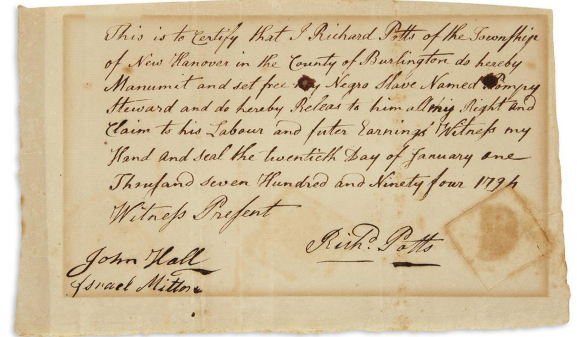 This is to Certify that I Richard Potts of the Township
of New Hanover in the County of Burlington do hereby
Manumit and set free my Negro Slave Named Pompy
Steward and do hereby Releas to him all my Right and
Claim to his Labour and futer Earnings Witness my
Hand and seal the twentieth Day of January one
Thousand seven Hundred and Ninety four 1794
Witness Present
Richd. Potts
John Hall
Israel